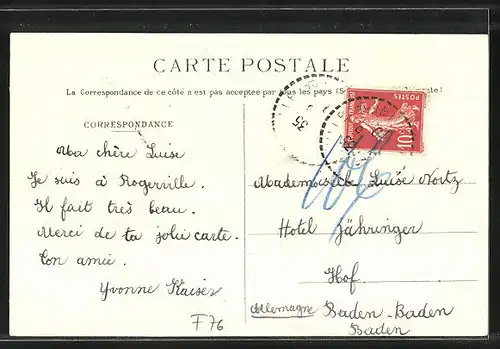 CARTE POSTALE
La Correspondance de ce côté n'est pas acceptée par tous les pays
CORRESPONDANCE
Ma chère Luise
Je suis à Rogerville.
Il fait très beau.
Merci de ta jolie carte.
Ton amie.
Yvonne Kaiser
F 76
POSTES
10
35
Mademoiselle Luise Nortz
Hotel Jähringer
Hof.
Allemagne Baden-Baden
Baden